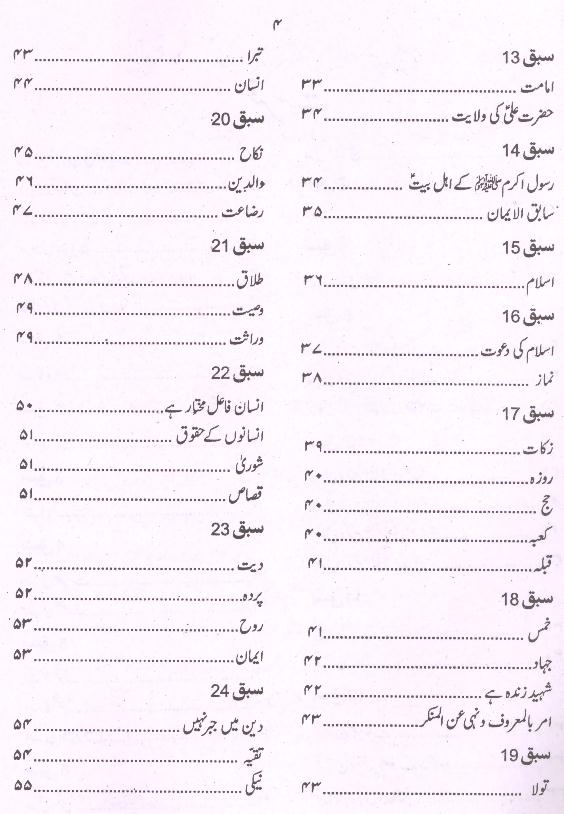 ۴
سبق 13
امامت ........................ ۳۳
حضرت علیؑ کی ولایت ........................ ۳۴
سبق 14
رسول اکرم ﷺ کے اہل بیتؑ ........................ ۳۴
سابق الایمان ........................ ۳۵
سبق 15
اسلام ........................ ۳۶
سبق 16
اسلام کی دعوت ........................ ۳۷
نماز ........................ ۳۸
سبق 17
زکات ........................ ۳۹
روزہ ........................ ۴۰
حج ........................ ۴۰
کعبہ ........................ ۴۰
قبلہ ........................ ۴۱
سبق 18
خمس ........................ ۴۱
جہاد ........................ ۴۲
شہید زندہ ہے ........................ ۴۲
امر بالمعروف و نہی عن المنکر ........................ ۴۳
سبق 19
تولا ........................ ۴۳
تبرا ........................ ۴۳
انسان ........................ ۴۴
سبق 20
نکاح ........................ ۴۵
والدین ........................ ۴۶
رضاعت ........................ ۴۷
سبق 21
طلاق ........................ ۴۸
وصیت ........................ ۴۹
وراثت ........................ ۴۹
سبق 22
انسان فاعل مختار ہے ........................ ۵۰
انسانوں کے حقوق ........................ ۵۱
شوریٰ ........................ ۵۱
قصاص ........................ ۵۱
سبق 23
دیت ........................ ۵۲
پردہ ........................ ۵۲
روح ........................ ۵۳
ایمان ........................ ۵۳
سبق 24
دین میں جبر نہیں ........................ ۵۴
تقیہ ........................ ۵۴
نیکی ........................ ۵۵